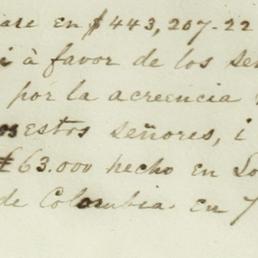 ase en $443,207-22
i à favor de los se
por la acreencia
os estos señores, i
£63.000 hecho en Lo
de Colombia. en 7